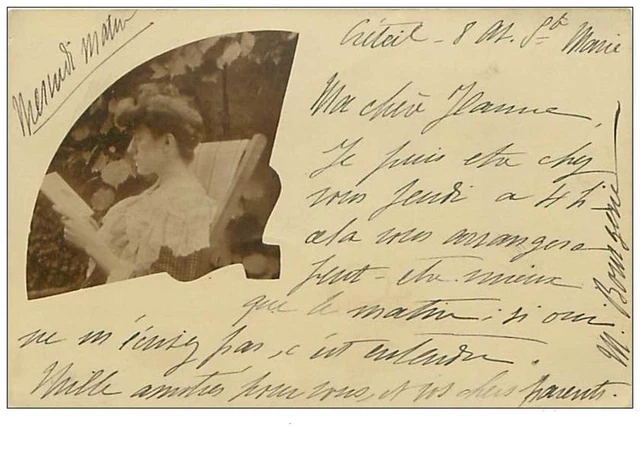 Mercredi matin
Créteil - 8 Av. Ste Marie
Ma chère Jeanne,
Je puis etre chez
vous jeudi a 4 h
cela vous arrangera
peut-etre mieux
que le matin ; si oui
ne m'écrivez pas, c'est entendu.
Mille amitiés pour vous et vos chers parents.
M. Bourgeois